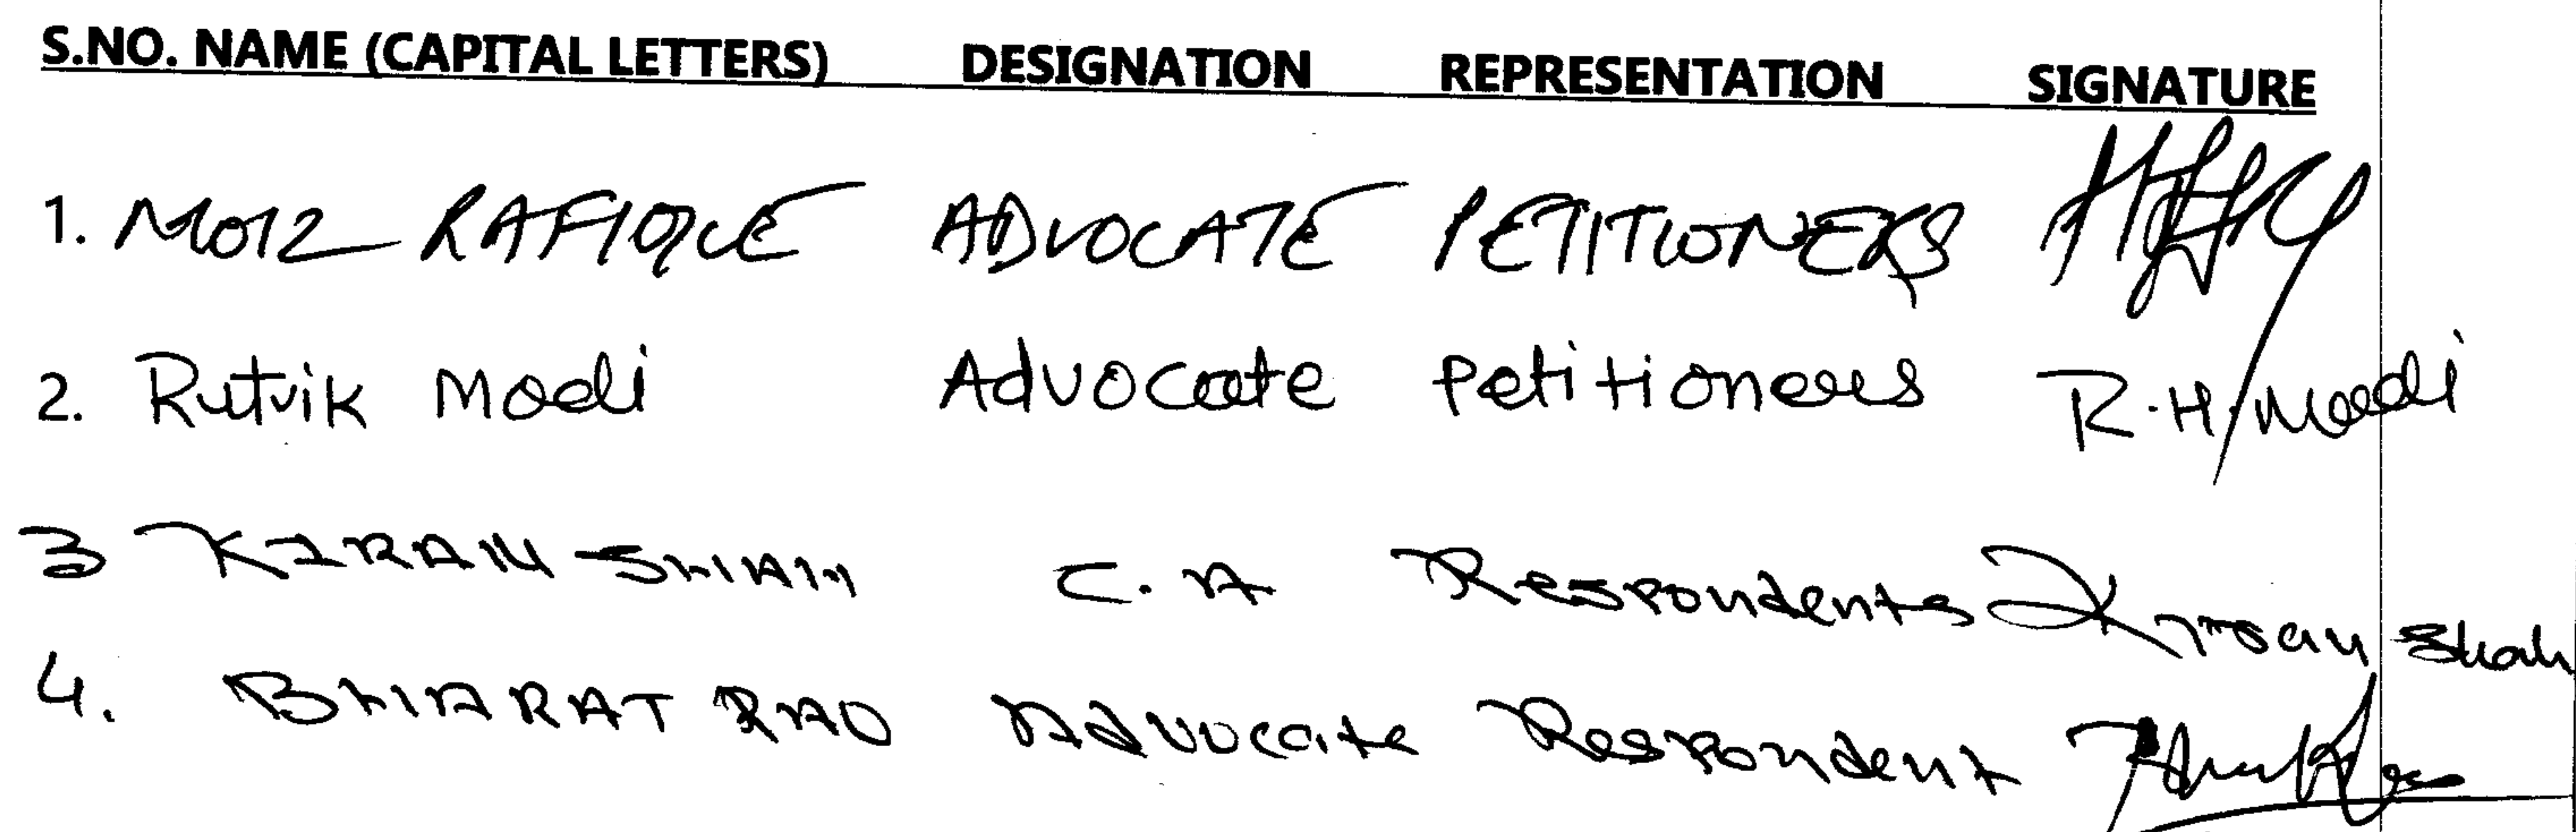 S.NO. NAME (CAPITAL LETTERS) DESIGNATION REPRESENTATION SIGNATURE
1. MOIZ RAFIQUE ADVOCATE PETITIONERS
2. Rutvik Modi Advocate Petitioners R.H. Modi
3 KIRAN SHAH C.A Respondents Kiran Shah
4. BHARAT RAO Advocate Respondent